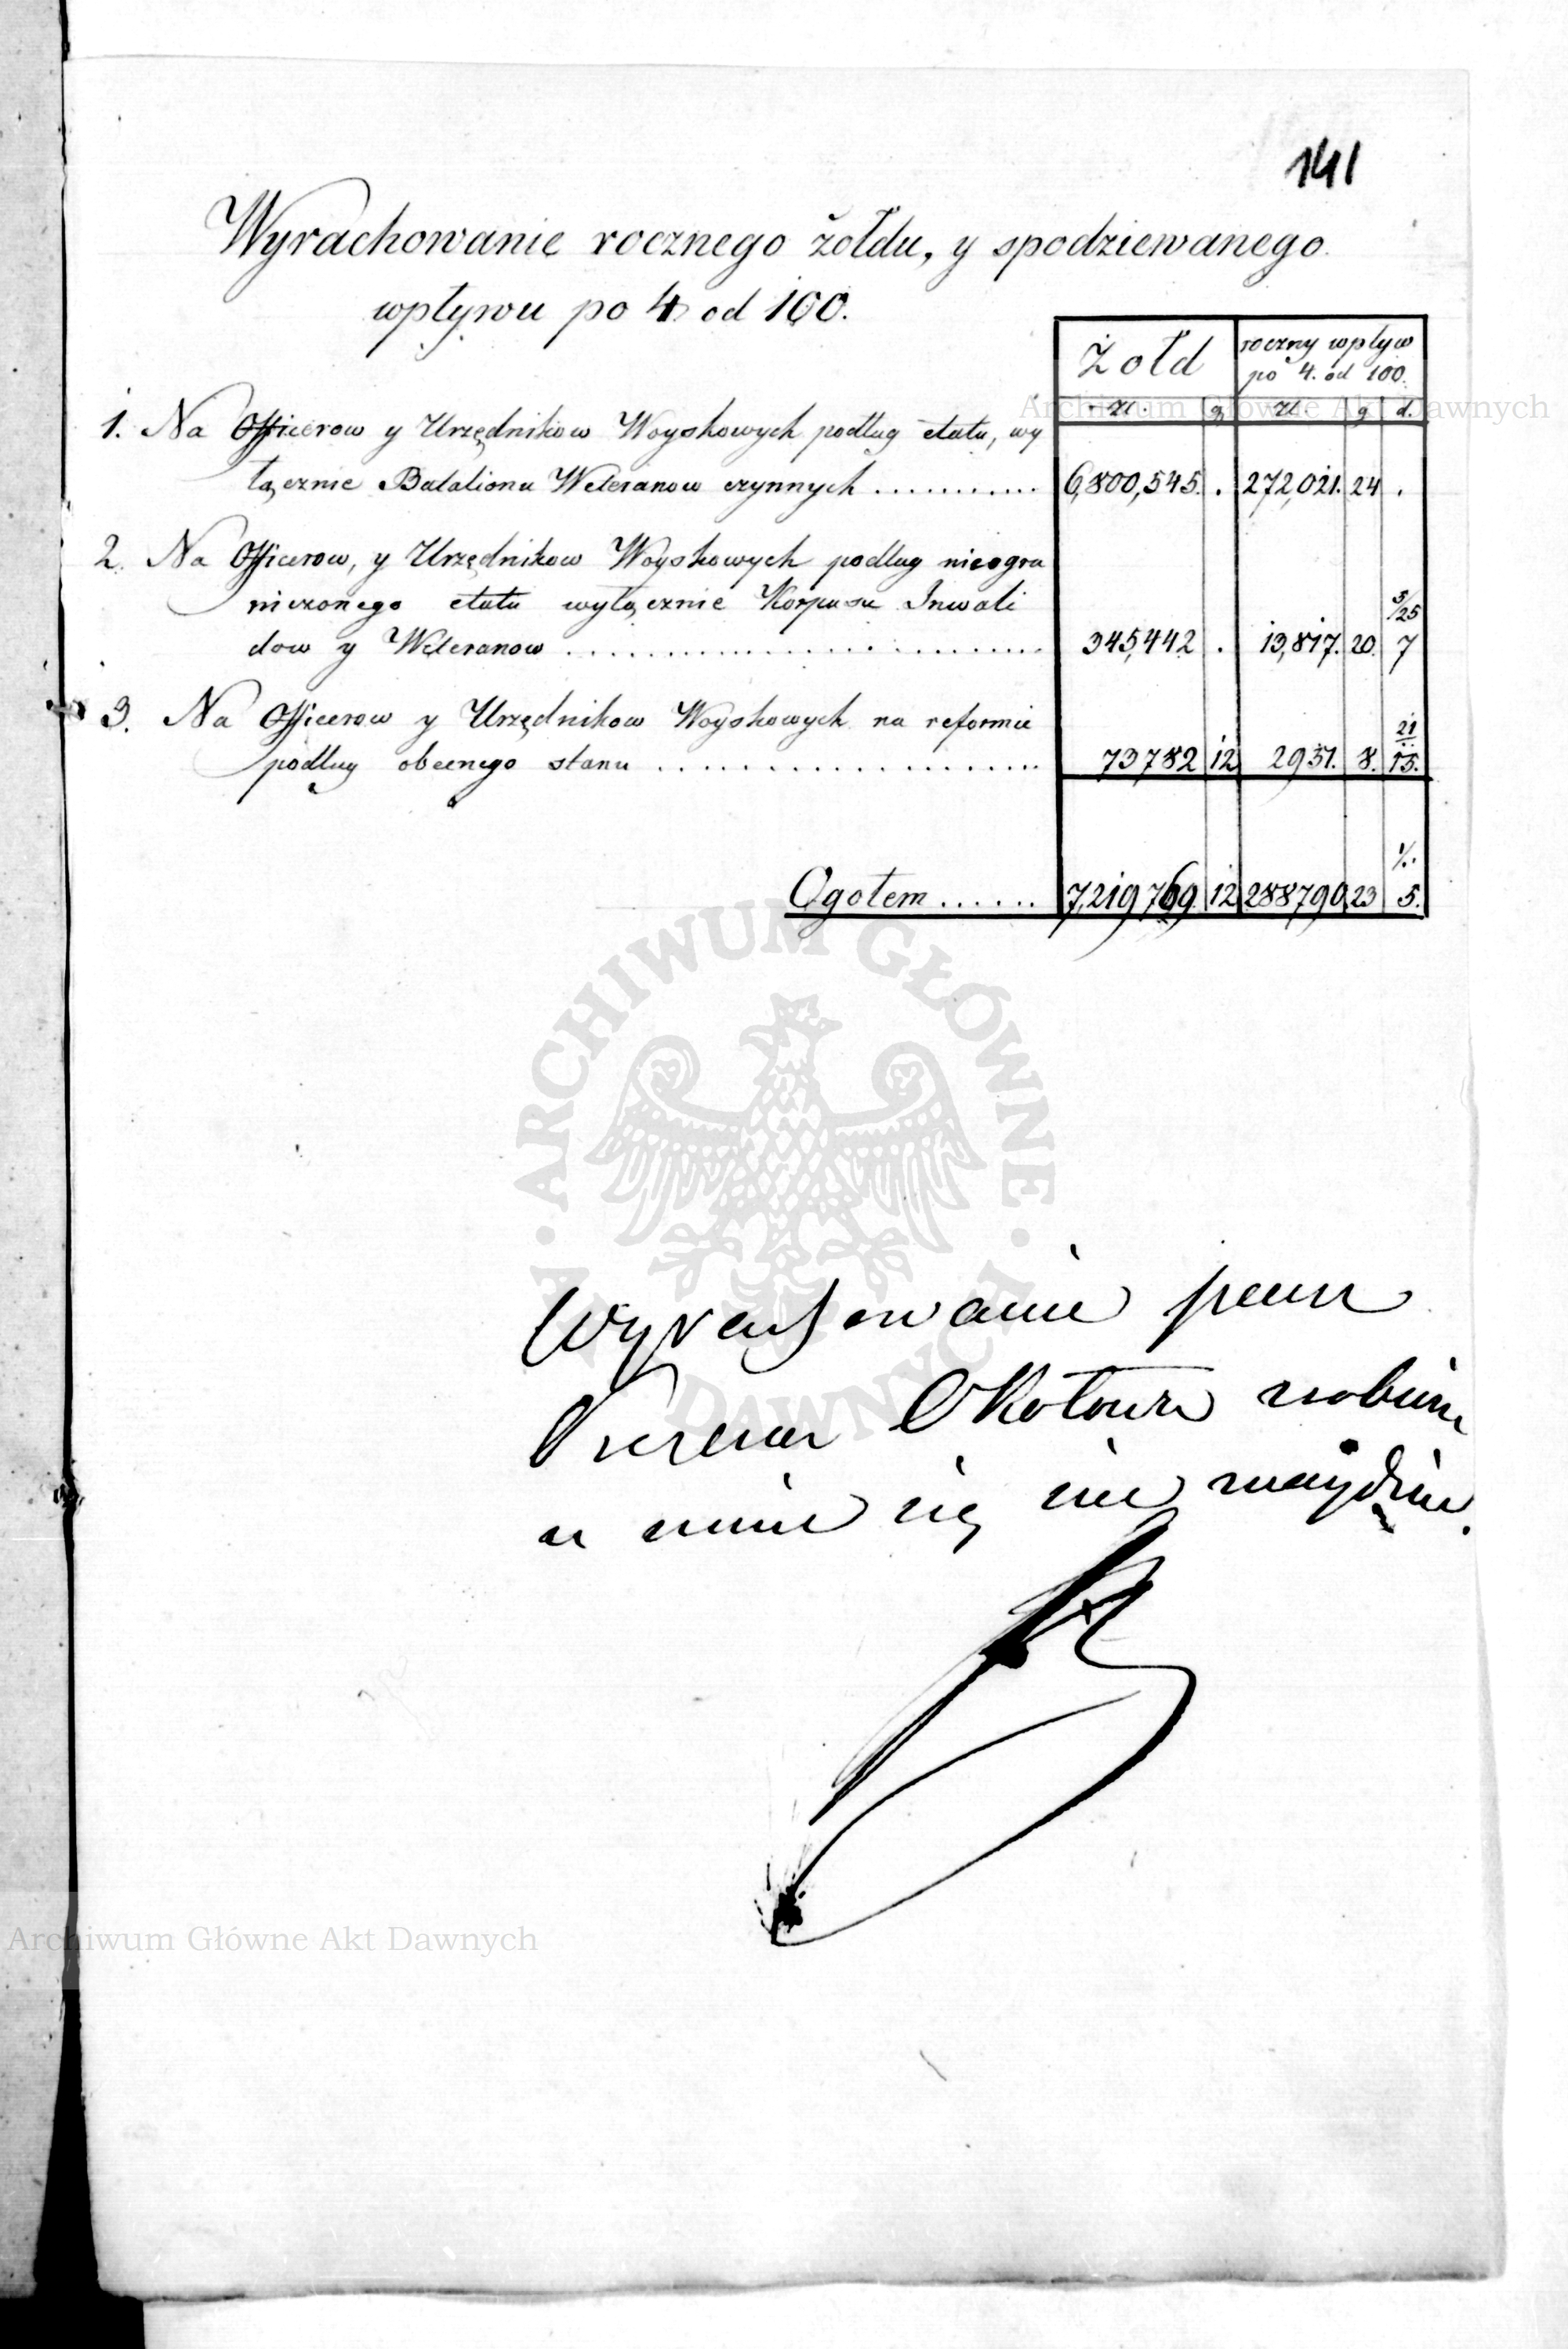 141
Wyrachowanie rocznego żołdu, y spodziewanego
wpływu po 4 od 100.
Żołd
roczny wpływ
po 4. od 100.
zł. g zł g d.
1. Na Officerow y Urzędnikow Woyskowych podług etatu, wy
łącznie Bataliona Weteranow czynnych ........... 6,800,545. . 272,021. 24 .
2. Na Officerow, y Urzędnikow Woyskowych podług nieogra
niczonego etatu wyłącznie Korpusu Inwali
3/25
dow y Weteranow ........................ 345,442 . 13,817. 20. 7
3. Na Officerow y Urzędnikow Woyskowych na reformie
podług obecnego stanu ................... 73782 12 2951. 8. 21/15.
Ogołem ...... 7,219769 12 288790 23 5.
ARCHIWUM GŁÓWNE AKT DAWNYCH
Wyrachowanie przez
Prezesa Okołowa zrobione
u mnie się nie znayduie.
Archiwum Główne Akt Dawnych
Archiwum Główne Akt Dawnych